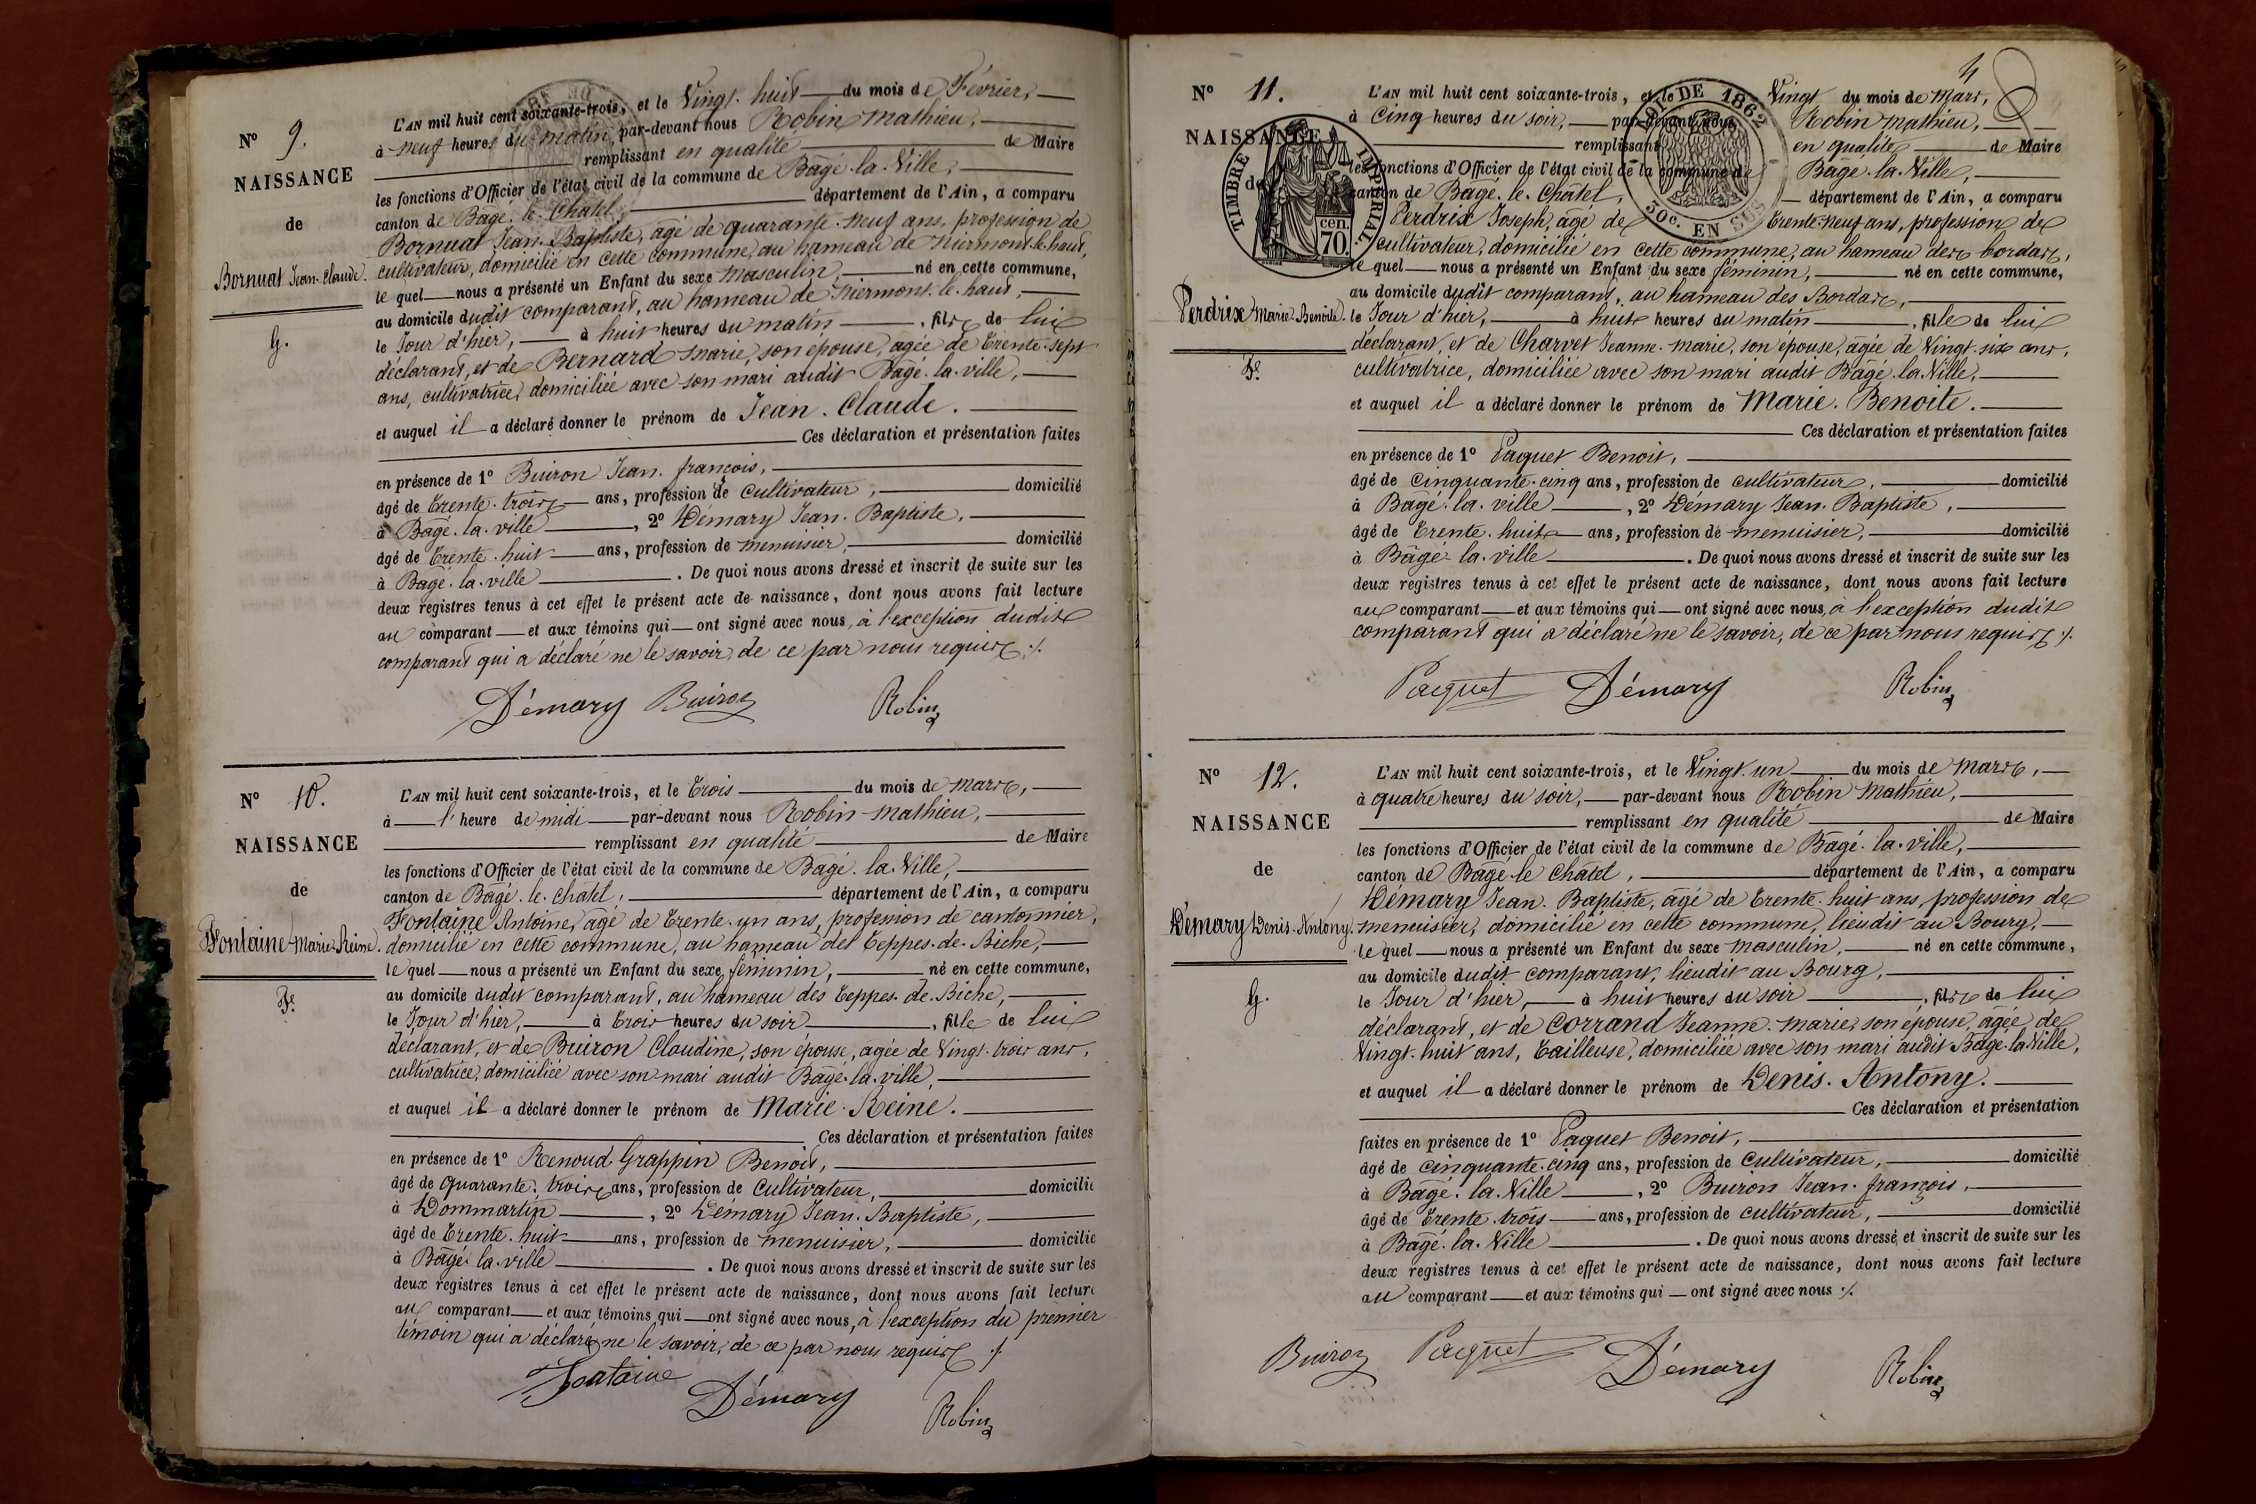 N° 9.
NAISSANCE
de
Bornuat Jean-Claude.
G.
L'AN mil huit cent soixante-trois, et le Vingt-huit du mois de Février,
à neuf heures du matin, par-devant nous Robin Mathieu,
remplissant en qualité de Maire
les fonctions d'Officier de l'état civil de la commune de Bâgé-la-Ville,
canton de Bâgé-le-Châtel, département de l'Ain, a comparu
Bornuat Jean-Baptiste, âgé de quarante-neuf ans, profession de
cultivateur, domicilié en cette commune, au hameau de Niermont-le-haut,
le quel nous a présenté un Enfant du sexe masculin, né en cette commune,
au domicile dudit comparant, au hameau de Niermont-le-haut,
le Jour d'hier, à huit heures du matin, fils de lui
déclarant, et de Bernard Marie, son épouse, âgée de trente-sept
ans, cultivatrice, domiciliée avec son mari audit Bâgé-la-ville,
et auquel il a déclaré donner le prénom de Jean-Claude.
Ces déclaration et présentation faites
en présence de 1° Buiron Jean-françois,
âgé de trente-trois ans, profession de cultivateur, domicilié
à Bâgé-la-ville, 2° Démary Jean-Baptiste,
âgé de trente-huit ans, profession de menuisier, domicilié
à Bâgé-la-ville. De quoi nous avons dressé et inscrit de suite sur les
deux registres tenus à cet effet le présent acte de naissance, dont nous avons fait lecture
au comparant et aux témoins qui ont signé avec nous, à l'exception dudit
comparant qui a déclaré ne le savoir, de ce par nous requis ./.
Démary Buiron Robin
N° 10.
NAISSANCE
de
Fontaine Marie-Reine.
Fe.
L'AN mil huit cent soixante-trois, et le trois du mois de mars,
à l'heure de midi par-devant nous Robin Mathieu,
remplissant en qualité de Maire
les fonctions d'Officier de l'état civil de la commune de Bâgé-la-Ville,
canton de Bâgé-le-Châtel, département de l'Ain, a comparu
Fontaine Antoine, âgé de trente-un ans, profession de cantonnier,
domicilié en cette commune, au hameau des teppes-de-Biche,
le quel nous a présenté un Enfant du sexe féminin, né en cette commune,
au domicile dudit comparant, au hameau des teppes-de-Biche,
le Jour d'hier, à trois heures du soir, fille de lui
déclarant, et de Buiron Claudine, son épouse, agée de Vingt-trois ans,
cultivatrice, domiciliée avec son mari audit Bâgé-la-ville,
et auquel il a déclaré donner le prénom de Marie-Reine.
Ces déclaration et présentation faites
en présence de 1° Renoud-Grappin Benoit,
âgé de quarante-trois ans, profession de cultivateur, domicilié
à Dommartin, 2° Démary Jean-Baptiste,
âgé de trente-huit ans, profession de menuisier, domicilié
à Bâgé-la-ville. De quoi nous avons dressé et inscrit de suite sur les
deux registres tenus à cet effet le présent acte de naissance, dont nous avons fait lecture
au comparant et aux témoins qui ont signé avec nous, à l'exception du premier
témoin qui a déclaré ne le savoir, de ce par nous requis ./.
Fontaine Démary Robin
4
N° 11.
NAISSANCE
de
Perdrix Marie-Benoite.
Fe.
TIMBRE IMPERIAL
cen.
70.
LOI DE 1862
50c. EN SUS
L'AN mil huit cent soixante-trois, et le Vingt du mois de Mars,
à cinq heures du soir, par-devant nous Robin Mathieu,
remplissant en qualité de Maire
les fonctions d'Officier de l'état civil de la commune de Bâgé-la-Ville,
canton de Bâgé-le-Châtel, département de l'Ain, a comparu
Perdrix Joseph, âgé de trente-neuf ans, profession de
cultivateur, domicilié en cette commune, au hameau des bordas,
le quel nous a présenté un Enfant du sexe féminin, né en cette commune,
au domicile dudit comparant, au hameau des Bordas,
le Jour d'hier, à huit heures du matin, fille de lui
déclarant, et de Charvet Jeanne-Marie, son épouse, âgée de Vingt-six ans,
cultivatrice, domiciliée avec son mari audit Bâgé-la-Ville,
et auquel il a déclaré donner le prénom de Marie-Benoite.
Ces déclaration et présentation faites
en présence de 1° Paquet Benoit,
âgé de cinquante-cinq ans, profession de cultivateur, domicilié
à Bâgé-la-ville, 2° Démary Jean-Baptiste,
âgé de trente-huit ans, profession de menuisier, domicilié
à Bâgé-la-ville. De quoi nous avons dressé et inscrit de suite sur les
deux registres tenus à cet effet le présent acte de naissance, dont nous avons fait lecture
au comparant et aux témoins qui ont signé avec nous, à l'exception dudit
comparant qui a déclaré ne le savoir, de ce par nous requis ./.
Paquet Démary Robin
N° 12.
NAISSANCE
de
Démary Denis-Antony.
G.
L'AN mil huit cent soixante-trois, et le Vingt-un du mois de mars,
à quatre heures du soir, par-devant nous Robin Mathieu,
remplissant en qualité de Maire
les fonctions d'Officier de l'état civil de la commune de Bâgé-la-ville,
canton de Bâgé-le-Châtel, département de l'Ain, a comparu
Démary Jean-Baptiste, âgé de trente-huit ans, profession de
menuisier, domicilié en cette commune, lieudit au Bourg,
le quel nous a présenté un Enfant du sexe masculin, né en cette commune,
au domicile dudit comparant, lieudit au Bourg,
le Jour d'hier, à huit heures du soir, fils de lui
déclarant, et de Corrand Jeanne-Marie, son épouse, agée de
Vingt-huit ans, tailleuse, domiciliée avec son mari audit Bâgé-la-Ville,
et auquel il a déclaré donner le prénom de Denis-Antony.
Ces déclaration et présentation
faites en présence de 1° Paquet Benoit,
âgé de cinquante-cinq ans, profession de cultivateur, domicilié
à Bâgé-la-Ville, 2° Buiron Jean-françois,
âgé de trente-trois ans, profession de cultivateur, domicilié
à Bâgé-la-Ville. De quoi nous avons dressé et inscrit de suite sur les
deux registres tenus à cet effet le présent acte de naissance, dont nous avons fait lecture
au comparant et aux témoins qui ont signé avec nous ./.
Buiron Paquet Démary Robin